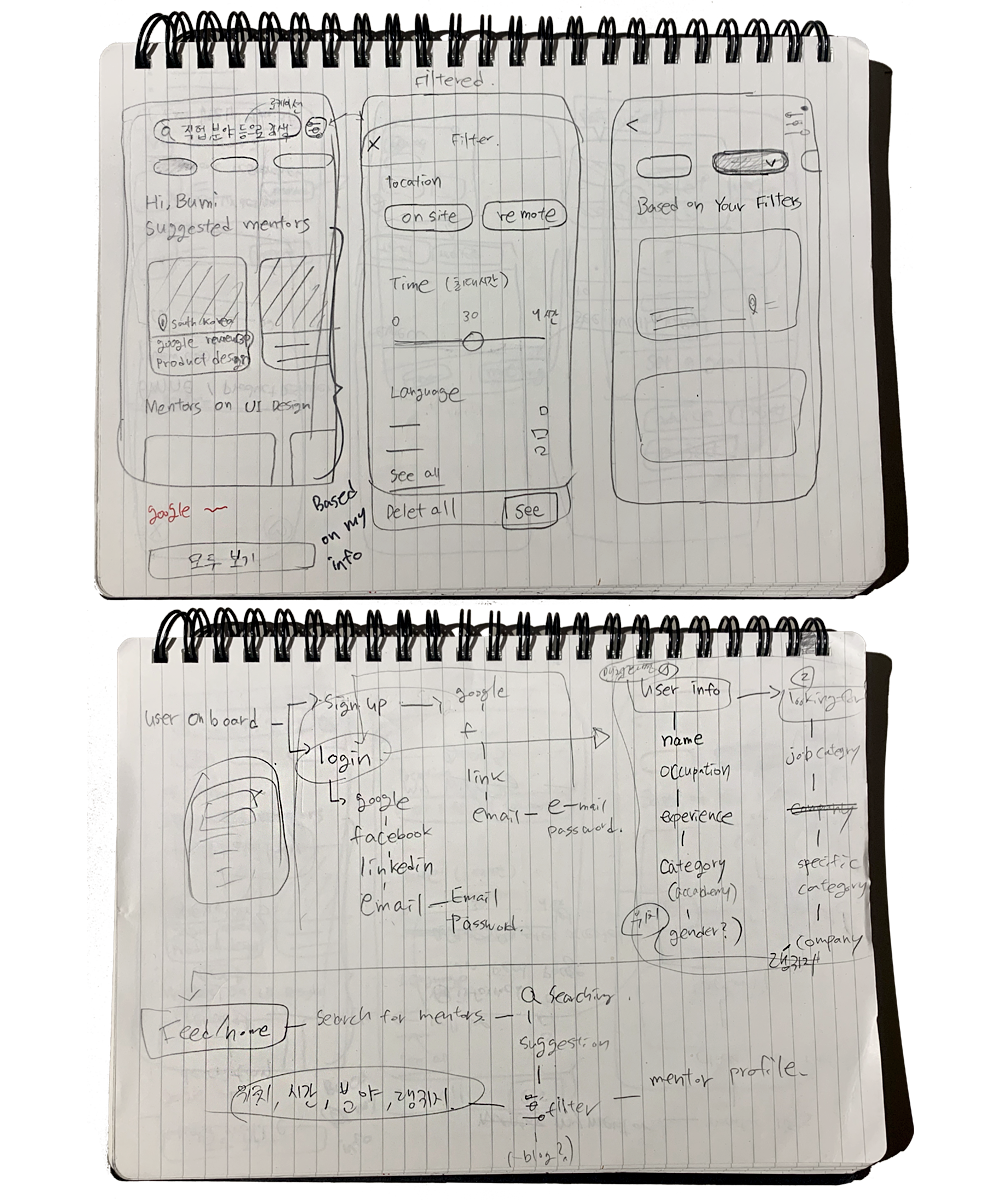 Filtered.
로케이션
직업 분야 등으로 검색
Hi, Bumi
Suggested mentors
South Korea
google
Product design
Mentors on UI Design
google
모두 보기
Based
on my
info
X
Filter.
location
on site
remote
Time (최대시간)
0
30
4시간
Language
See all
Delet all
See
<
Based on Your Filters
user onboard
Sign up
google
f
link
email
e-mail
password.
login
google
facebook
linkedin
email
Email
Password.
①
User info
name
occupation
experience
Category
(accademy)
위치
(gender?)
②
looking for
job category
company
specific
category
company
랭귀지
Feed/home
Search for mentors.
Searching.
suggestion
위치, 시간, 분야, 랭귀지
filter
(-blog?)
mentor profile.